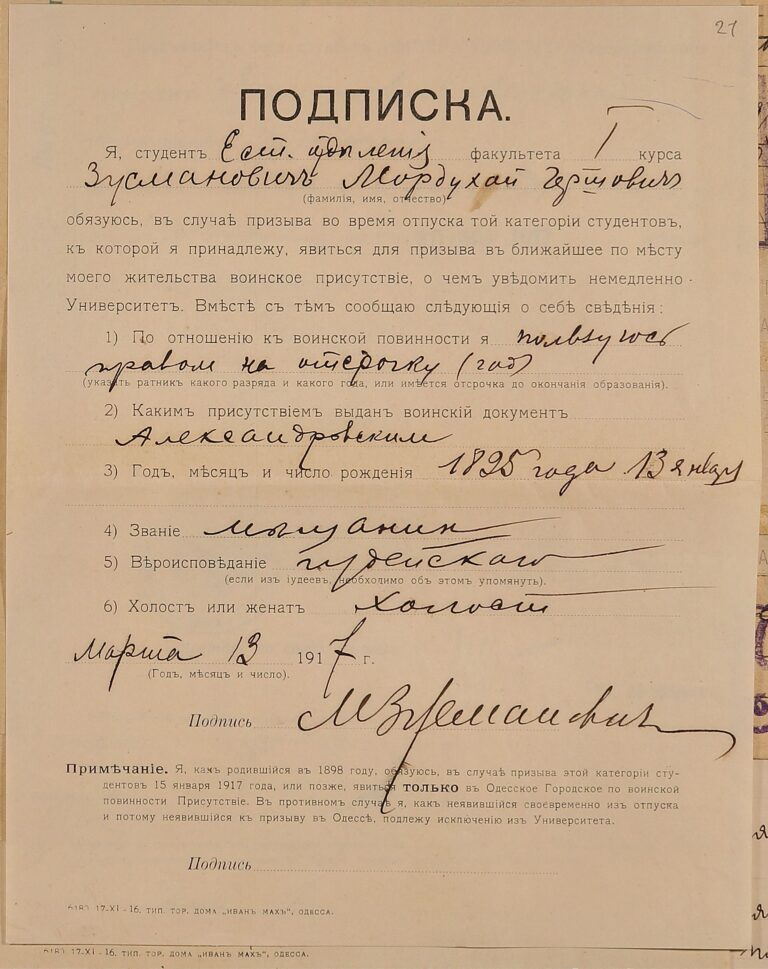 21
ПОДПИСКА.
Я, студентъ Ест. отдѣленія факультета I курса
Зусмановичъ Мордухай Гертовичъ
(фамилія, имя, отчество)
обязуюсь, въ случаѣ призыва во время отпуска той категоріи студентовъ,
къ которой я принадлежу, явиться для призыва въ ближайшее по мѣсту
моего жительства воинское присутствіе, о чемъ увѣдомить немедленно
Университетъ. Вмѣстѣ съ тѣмъ сообщаю слѣдующія о себѣ свѣдѣнія:
1) По отношенію къ воинской повинности я пользуюсь
правом на отсрочку (год)
(указать ратникъ какого разряда и какого года, или имѣется отсрочка до окончанія образованія).
2) Какимъ присутствіемъ выданъ воинскій документъ
Александровским
3) Годъ, мѣсяцъ и число рожденія 1895 года 13 января
4) Званіе мѣщанин
5) Вѣроисповѣданіе іудейскаго
(если изъ іудеевъ, необходимо объ этомъ упомянуть).
6) Холостъ или женатъ холост
Марта 13 1917 г.
(Годъ, мѣсяцъ и число).
Подпись МЗусманович
Примѣчаніе. Я, какъ родившійся въ 1898 году, обязуюсь, въ случаѣ призыва этой категоріи сту-
дентовъ 15 января 1917 года, или позже, явиться ТОЛЬКО въ Одесское Городское по воинской
повинности Присутствіе. Въ противномъ случаѣ я, какъ неявившійся своевременно изъ отпуска
и потому неявившійся къ призыву въ Одессѣ, подлежу исключенію изъ Университета.
Подпись
17-XI-16. ТИП. ТОР. ДОМА „ИВАНЪ МАХЪ“, ОДЕССА.
17-XI-16. ТИП. ТОР. ДОМА „ИВАНЪ МАХЪ“, ОДЕССА.